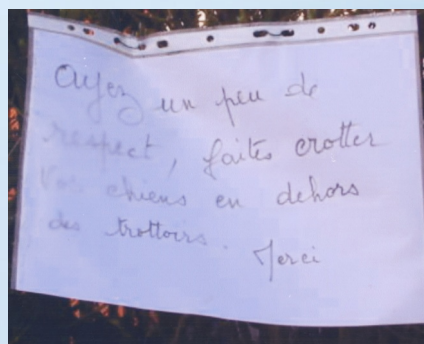 Ayez un peu de
respect, faites crotter
vos chiens en dehors
des trottoirs.
Merci